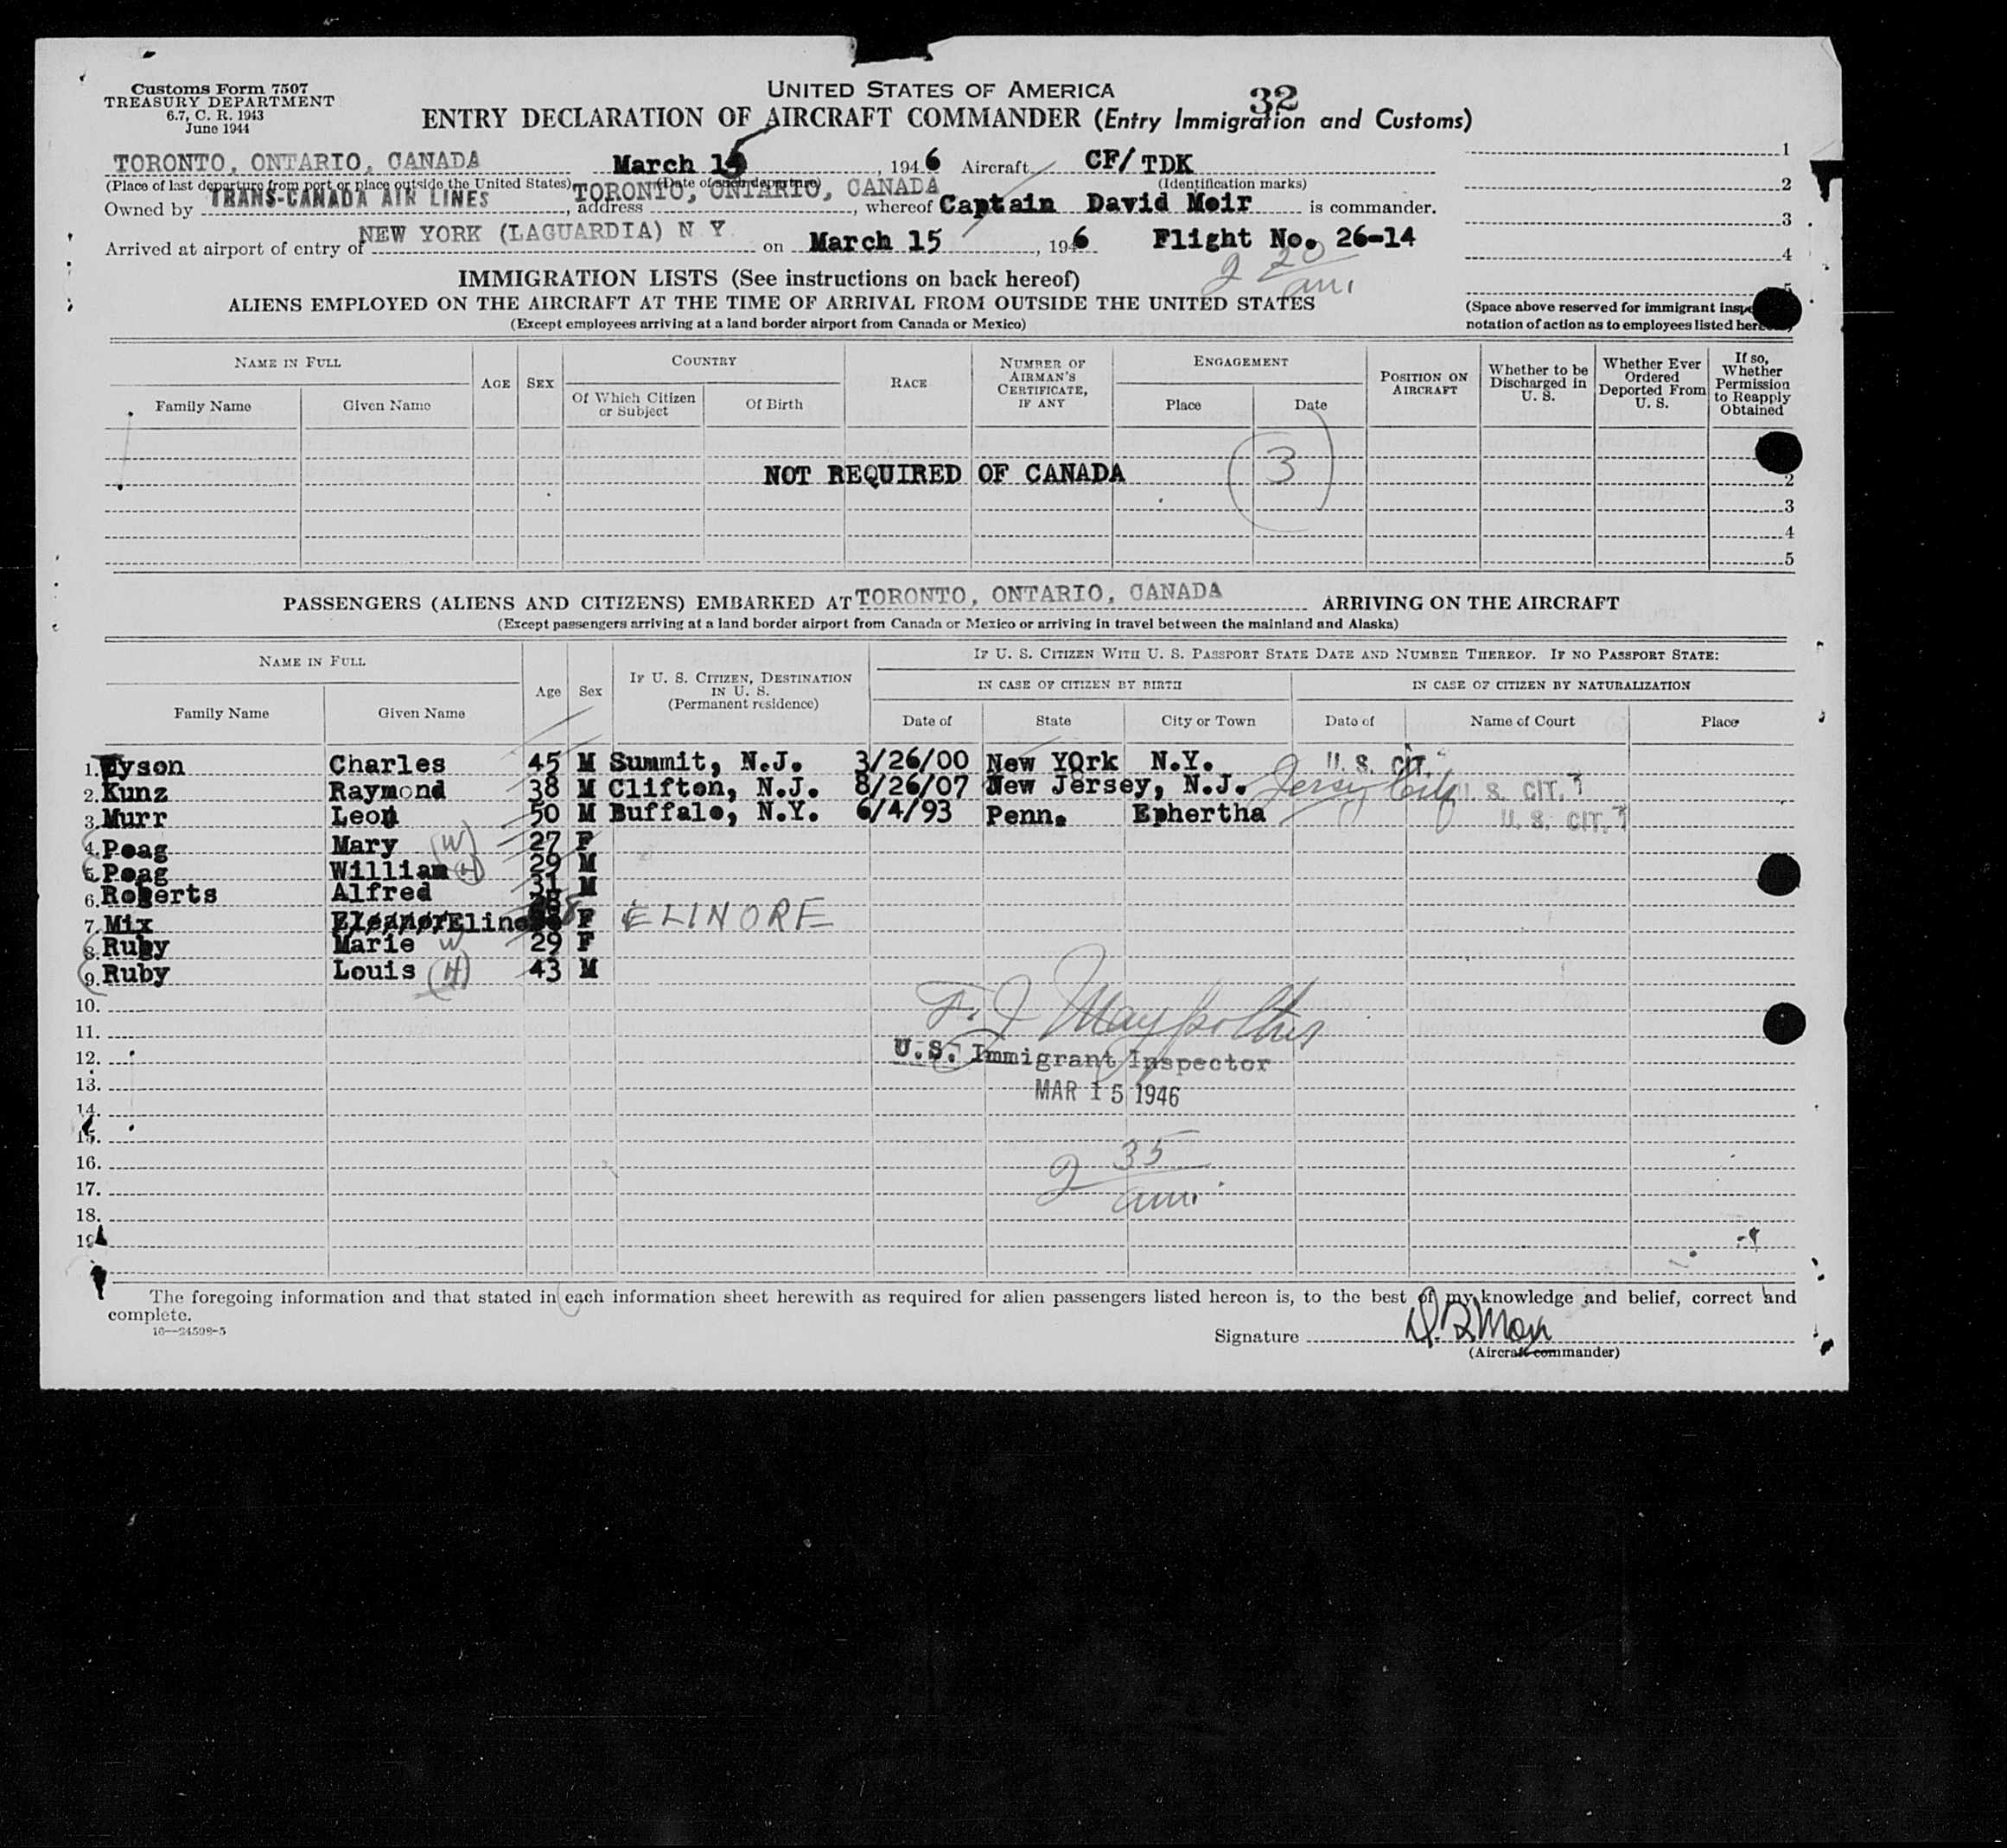 Customs Form 7507
TREASURY DEPARTMENT
6.7, C. R. 1943
June 1944
UNITED STATES OF AMERICA
32
ENTRY DECLARATION OF AIRCRAFT COMMANDER (Entry Immigration and Customs)
TORONTO, ONTARIO, CANADA March 15, 1946 Aircraft CF/TDK
(Place of last departure from port or place outside the United States) (Date of such departure) (Identification marks)
Owned by TRANS-CANADA AIR LINES, address TORONTO, ONTARIO, CANADA, whereof Captain David Moir is commander.
Arrived at airport of entry of NEW YORK (LAGUARDIA) N Y on March 15, 1946 Flight No. 26-14
2 20 am
1
2
3
4
5
IMMIGRATION LISTS (See instructions on back hereof)
ALIENS EMPLOYED ON THE AIRCRAFT AT THE TIME OF ARRIVAL FROM OUTSIDE THE UNITED STATES
(Except employees arriving at a land border airport from Canada or Mexico)
(Space above reserved for immigrant
notation of action as to employees listed
NAME IN FULL
Family Name
Given Name
AGE
SEX
COUNTRY
Of Which Citizen or Subject
Of Birth
RACE
NUMBER OF AIRMAN'S CERTIFICATE, IF ANY
ENGAGEMENT
Place
Date
POSITION ON AIRCRAFT
Whether to be Discharged in U. S.
Whether Ever Ordered Deported From U. S.
If so, Whether Permission to Reapply Obtained
NOT REQUIRED OF CANADA
(3)
2
3
4
5
PASSENGERS (ALIENS AND CITIZENS) EMBARKED AT TORONTO, ONTARIO, CANADA ARRIVING ON THE AIRCRAFT
(Except passengers arriving at a land border airport from Canada or Mexico or arriving in travel between the mainland and Alaska)
NAME IN FULL
Family Name
Given Name
Age
Sex
IF U. S. CITIZEN, DESTINATION IN U. S.
(Permanent residence)
IF U. S. CITIZEN WITH U. S. PASSPORT STATE DATE AND NUMBER THEREOF. IF NO PASSPORT STATE:
IN CASE OF CITIZEN BY BIRTH
IN CASE OF CITIZEN BY NATURALIZATION
Date of
State
City or Town
Date of
Name of Court
Place
1. yson Charles 45 M Summit, N.J. 3/26/00 New YOrk N.Y. U. S. CIT.
2. Kunz Raymond 38 M Clifton, N.J. 8/26/07 New Jersey, N.J. Jersey City U. S. CIT.
3. Murr Leon 50 M Buffalo, N.Y. 6/4/93 Penn. Ephertha U. S. CIT.
4. Poag Mary (W) 27 F
5. Poag William (H) 29 M
6. Roberts Alfred 31 M
7. Mix Eleanor F ELINORE
8. Ruby Marie W 29 F
9. Ruby Louis (H) 43 M
10.
11.
12.
13.
14.
15.
16.
17.
18.
19
F. J.
U.S. Immigrant Inspector
MAR 15 1946
2 35 am
The foregoing information and that stated in each information sheet herewith as required for alien passengers listed hereon is, to the best of my knowledge and belief, correct and
complete.
16—24598-5
Signature
(Aircraft commander)